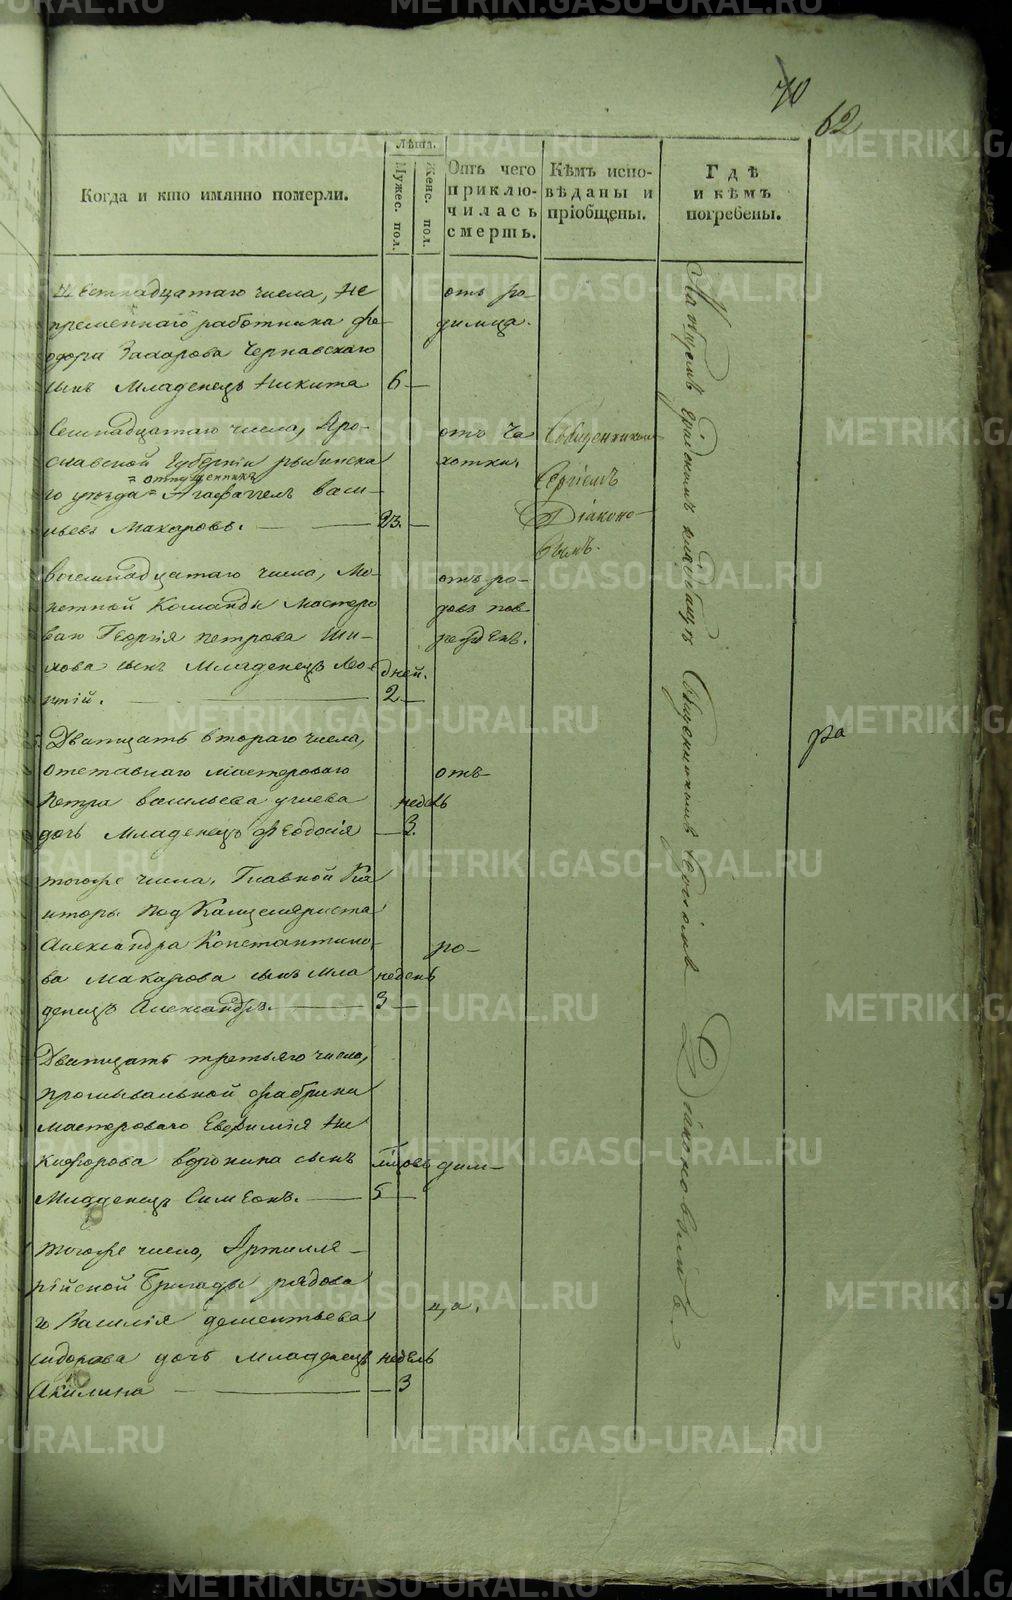 70
62
Когда и кто имянно померли.
Лѣта.
Мужес. пол.
Женс. пол.
Отъ чего приклю-
чилась смерть.
Кѣмъ испо-
вѣданы и
пріобщены.
Гдѣ
и кѣмъ
погребены.
числа, Не
пременнаго работника Фе-
одора Захарова Чернавскаго
сынъ Младенецъ Никита 6 —
отъ ро-
димца.
Семнадцатаго числа, Яро-
славской Губерніи рыбинска
= отпущенникъ
го уѣзда = Агафаггелъ Васи-
льевъ Макаровъ. — 23. —
отъ ча
хотки,
Священникомъ
Сергіемъ
Діаконо-
вымъ.
восемнадцатаго числа, Мо-
нетной Команды Мастеро
ваго Георгія петрова Ши-
хова сынъ Младенецъ Лео-
нтій. —
дней.
2 —
отъ ро-
довъ пов
режденъ.
Дватцать втораго числа,
отставнаго мастероваго
Петра васильева
дочь Младенецъ Феодосія
недель
— 3.
отъ
тогоже числа, Главной Ка
нторы подканцеляриста
Александра Константино-
ва Макарова сынъ мла
денецъ Александръ. —
недель
3 —
ро-
Дватцать третьяго числа,
промывальной фабрики
мастероваго Евфимія Ни
кифорова воронина сынъ
Младенецъ Симеонъ. —
5 —
дим-
тогоже числа, Артилле-
рійской Бригады рядова
го Василія дементьева
сидорова дочь младенецъ
Акилина —
недель
— 3
ца.
На общемъ градскомъ кладбищѣ Священникомъ Сергіемъ Діаконовымъ.
ра
METRIKI.GASO-URAL.RU